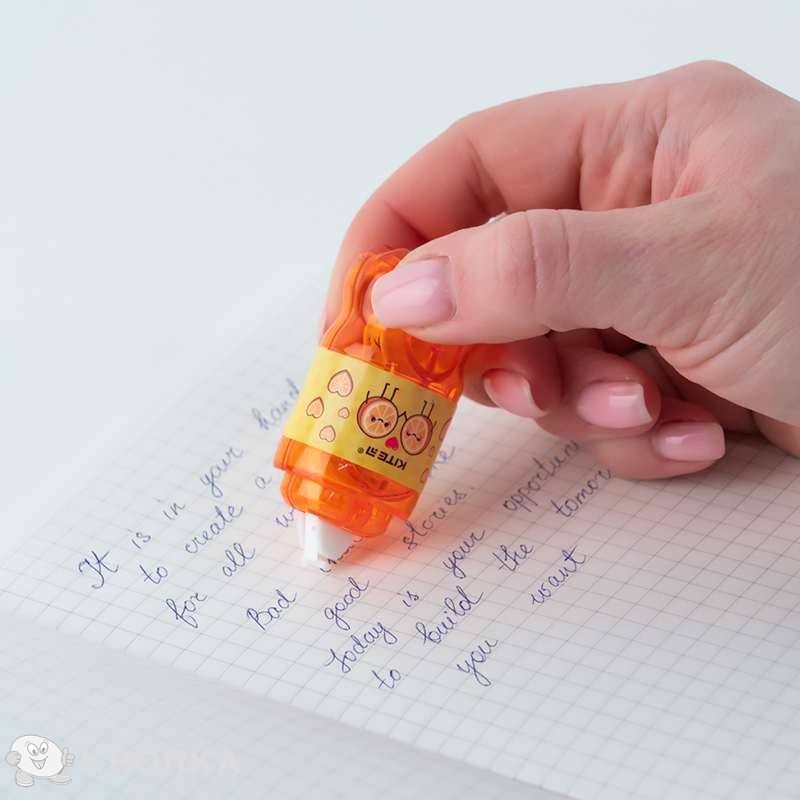 It is in your hand
to create a
for all
Bad
good stories.
Today is your opportun
to build the tomor
you want
KITE
КНОПКА